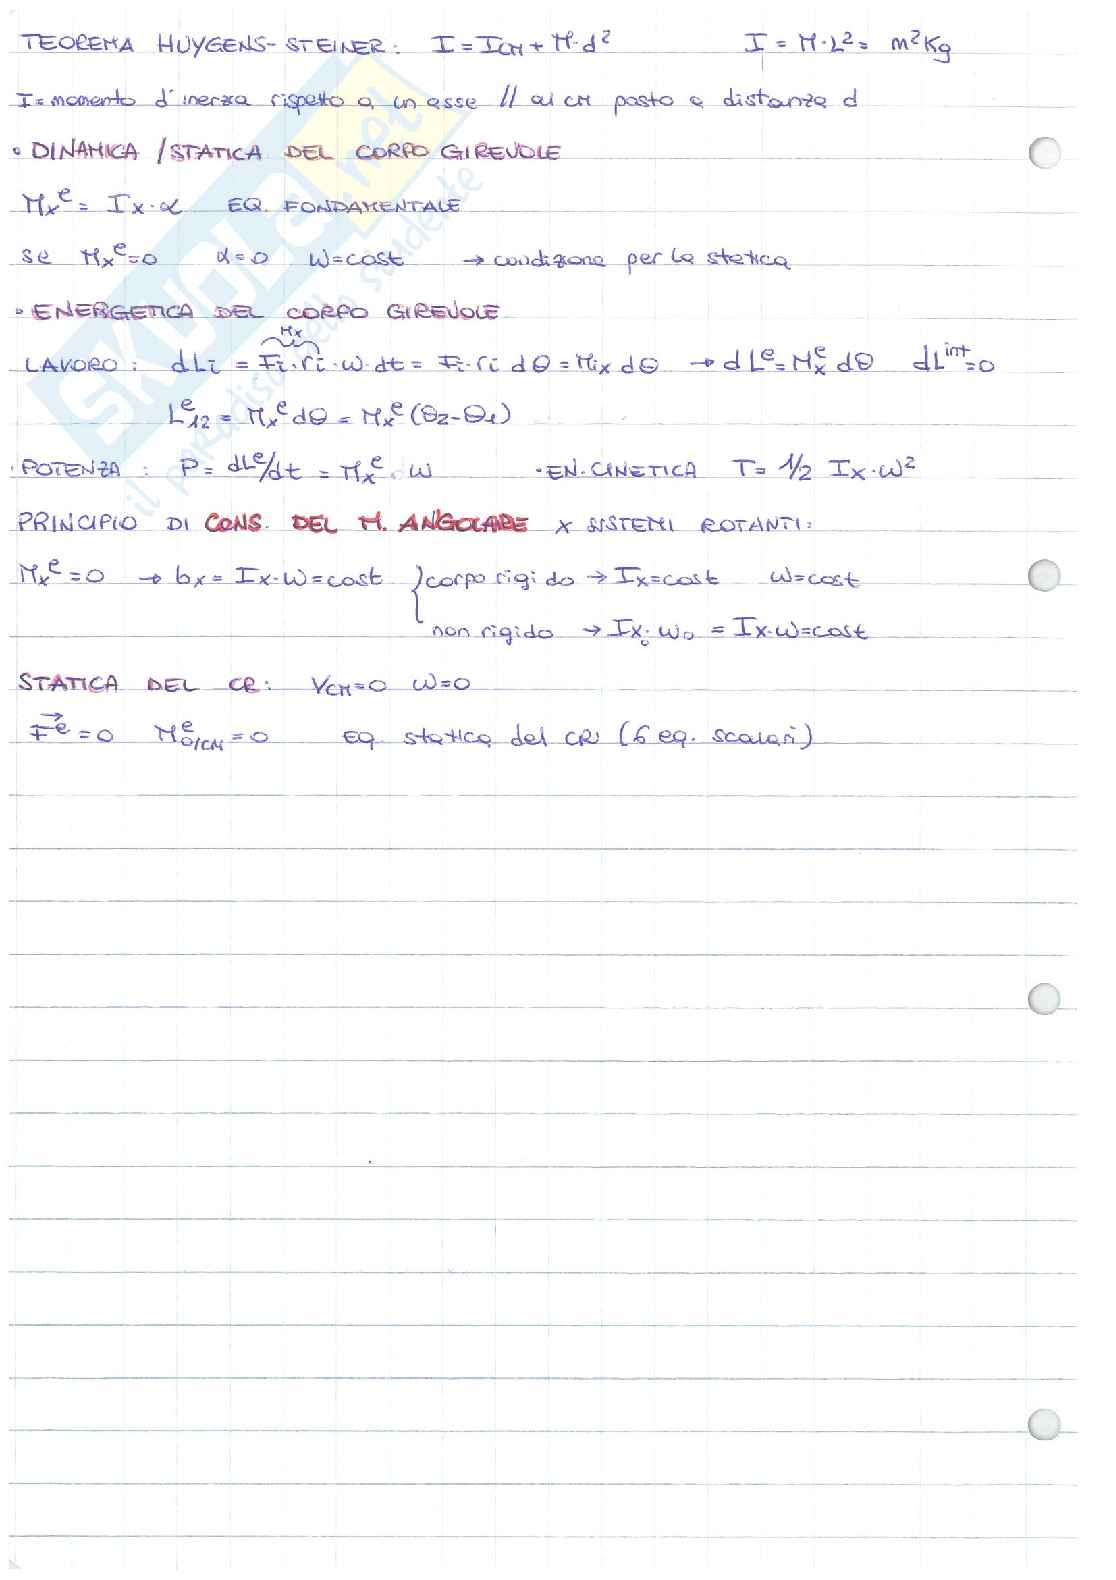 TEOREMA HUYGENS-STEINER: I = I_CM + M·d² I = M·L² = m²Kg
I = momento d'inerzia rispetto a un asse // al CM posto a distanza d
• DINAMICA / STATICA DEL CORPO GIREVOLE
Mxᵉ = Ix·α EQ. FONDAMENTALE
se Mxᵉ=0 α=0 ω=cost → condizione per la statica
• ENERGETICA DEL CORPO GIREVOLE
Mx
LAVORO: dLi = Fi·ri·ω·dt = Fi·ri dθ = Mix dθ → dLᵉ = Mxᵉ dθ dL^int=0
Lᵉ₁₂ = Mxᵉ dθ = Mxᵉ (θ₂-θ₁)
· POTENZA: P = dLᵉ/dt = Mxᵉ · ω · EN. CINETICA T = 1/2 Ix·ω²
PRINCIPIO DI CONS. DEL M. ANGOLARE x SISTEMI ROTANTI:
Mxᵉ=0 → bx = Ix·ω=cost { corpo rigido → Ix=cost ω=cost
non rigido → Ix₀·ω₀ = Ix·ω=cost
STATICA DEL CR: V_CM=0 ω=0
F⃗ᵉ=0 Mᵉ_O/CM=0 EQ. statica del CR (6 eq. scalari)
SKUOLA.net
il paradiso dello studente